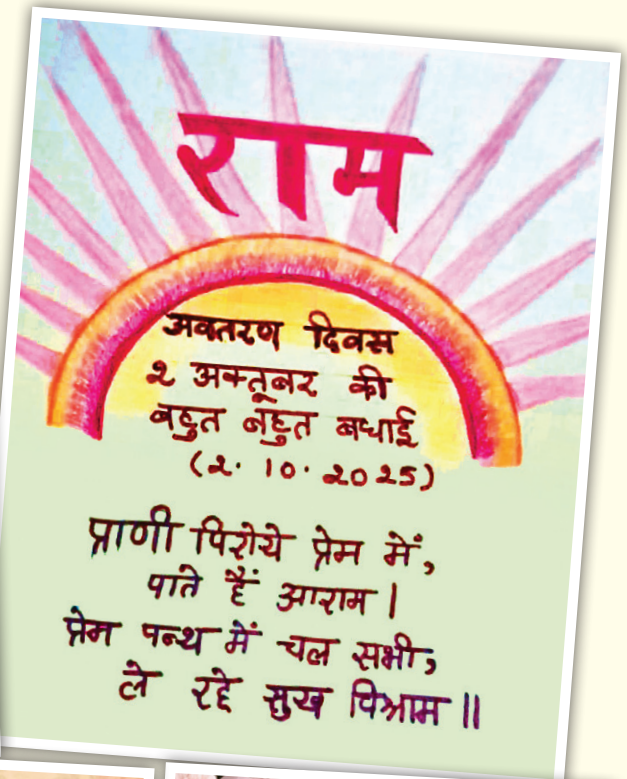 राम
अवतरण दिवस
2 अक्तूबर की
बहुत बहुत बधाई
(2. 10. 2025)
प्राणी पिरोये प्रेम में,
पाते हैं आराम।
प्रेम पन्थ में चल सभी,
ले रहे सुख विश्राम॥